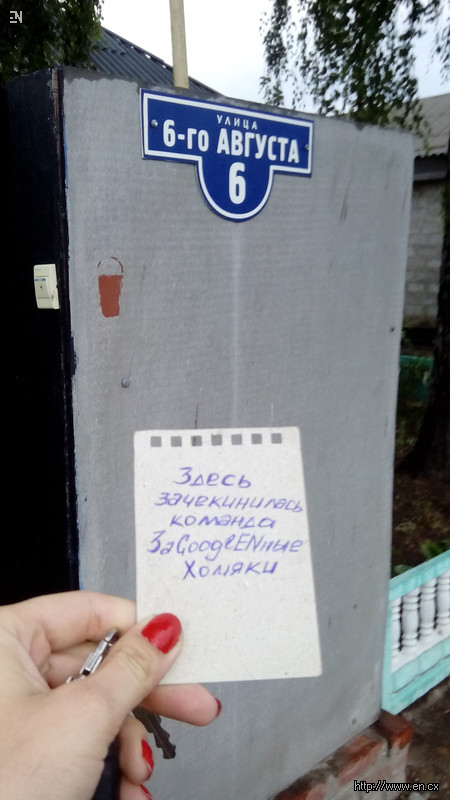 EN
УЛИЦА
6-го АВГУСТА
6
Здесь
зачекинилась
команда
ЗаGoogLENные
Хомяки
http://www.en.cx